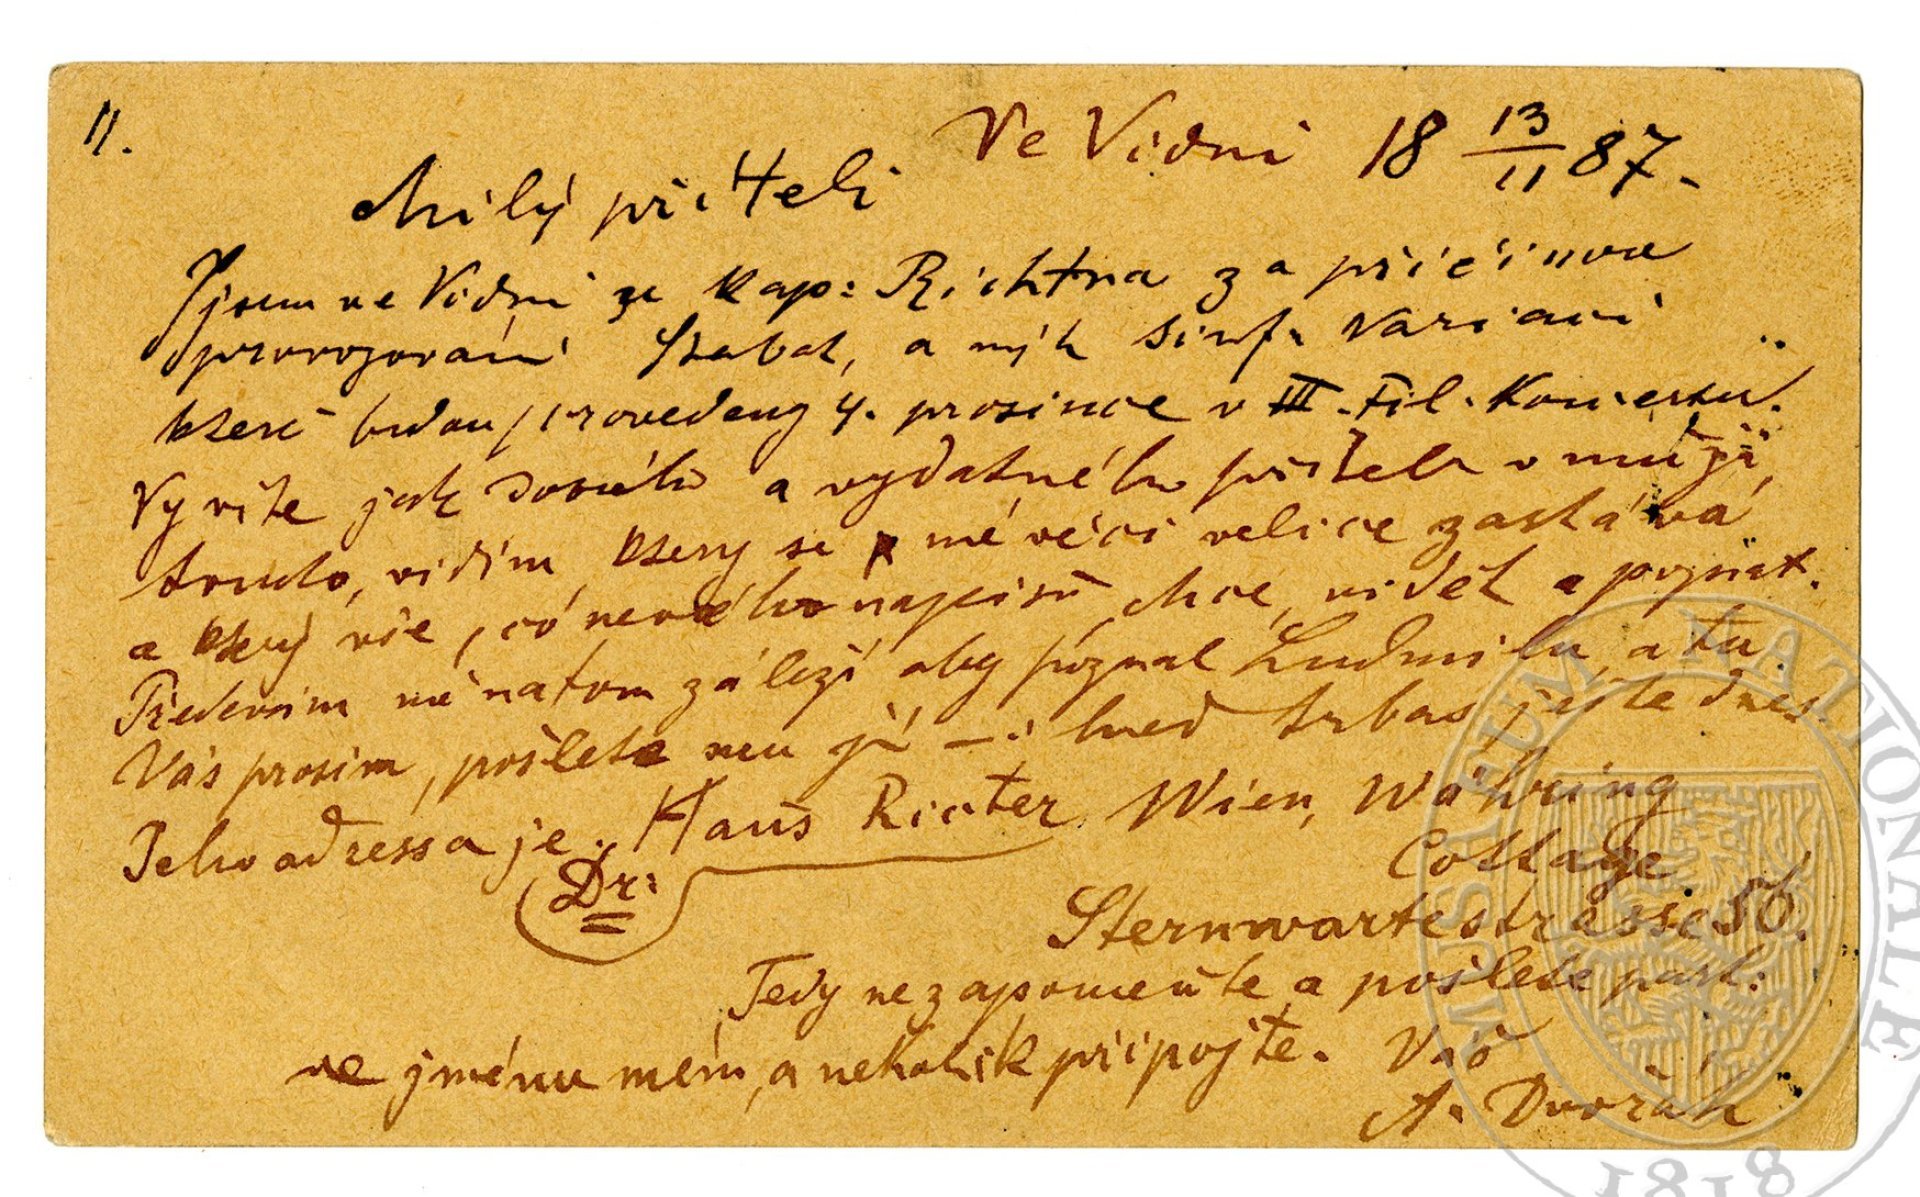 11.
Ve Vídni 18 13/11 87.
Milý příteli
Jsem ve Vídni u kap: Richtra za příčinou
provozování Stabat, a mých Sinf. Variací
které budou provedeny 4. prosince v III. Fil. Koncertu.
Vy víte jak dobrého a vydatného přítele v muži
tomto, vidím, který se mé věci velice zastává
a který vše, co nového napíšu, chce, vidět a poznat.
Především mě na tom záleží aby poznal Ludmilu, a tu
Vás prosím, pošlete mu ji — i hned třebas, ještě dnes.
Jeho adressa je. Hans Richter Wien, Währing
Dr:
Cottage
Sternwartestrasse 56.
Tedy nezapomeňte a pošlete part:
ve jménu mém, a několik připojte. Váš
A. Dvořák
MUSEUM NATIONALE
1818